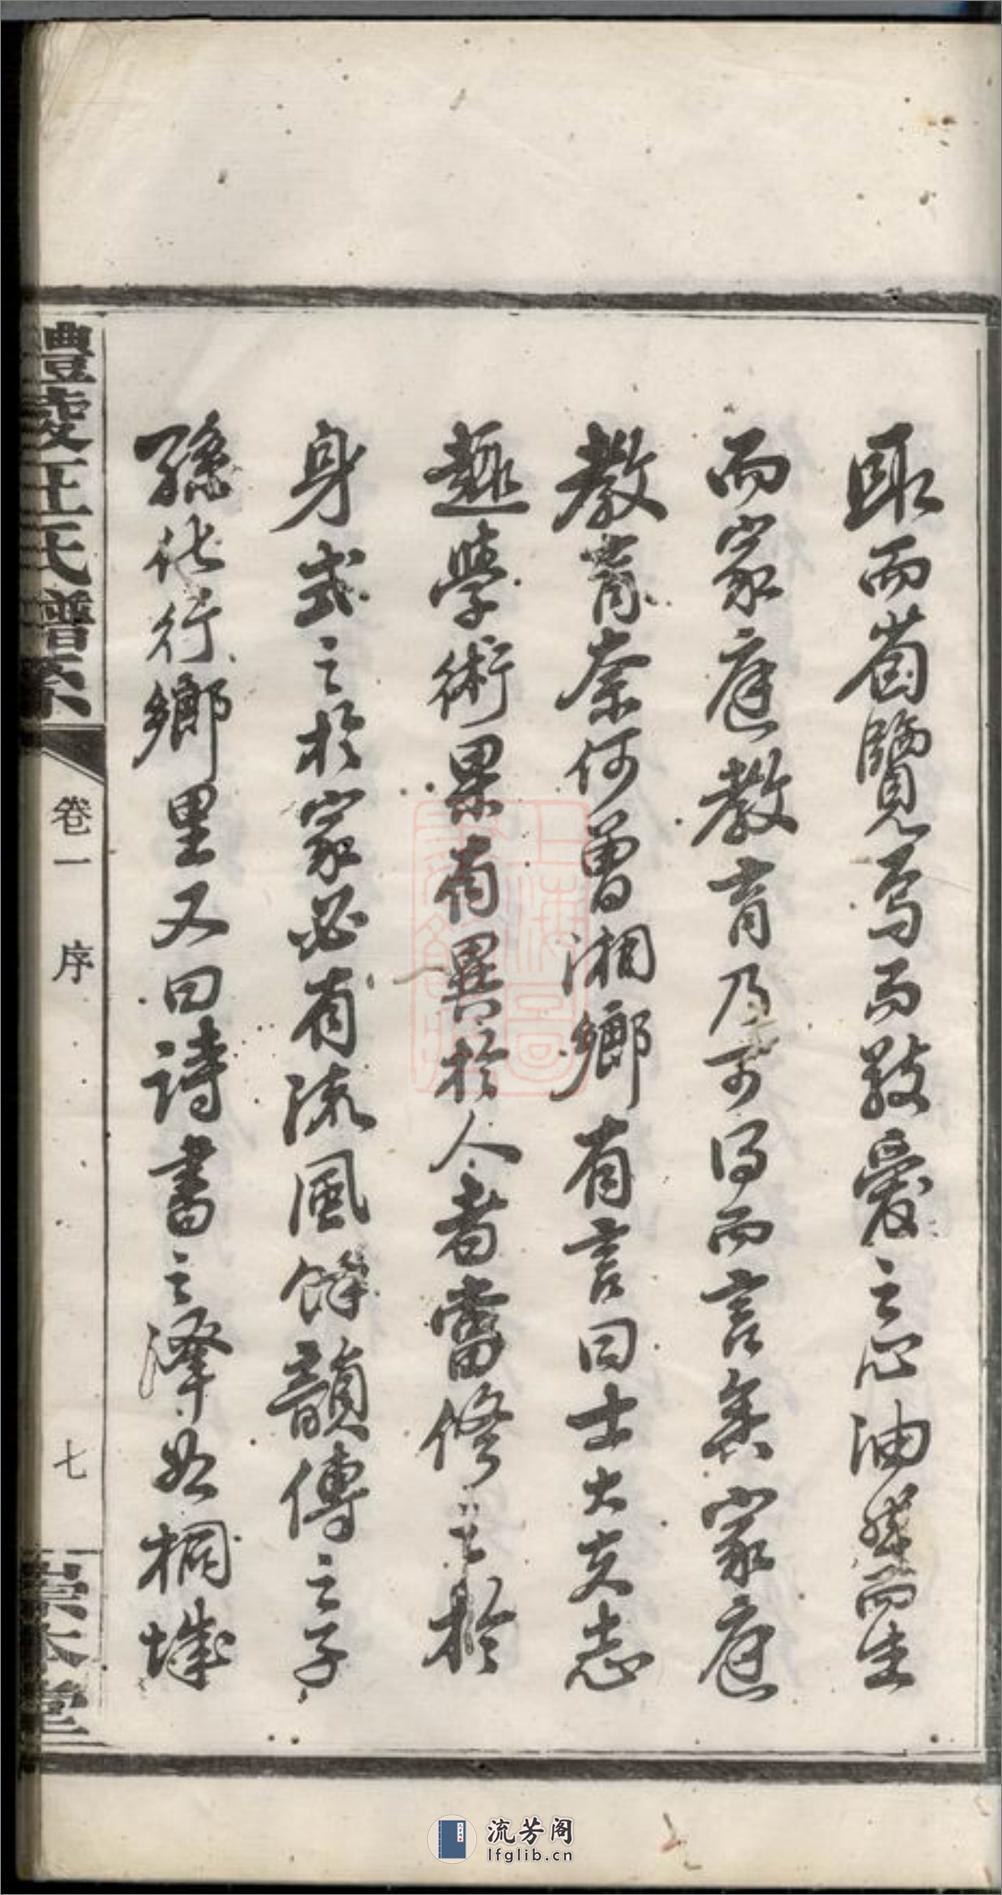 取而茵覽焉而敬愛之心油然而生
而家庭教育乃可得而言矣家庭
教育奈何曾湘鄉有言曰士大夫志
趣學術果有異於人者當修之於
身式之於家必有流風餘韻傳之子
孫化行鄉里又曰詩書之澤如桐城
醴陵汪氏譜系
卷一 序
七
崇本堂
流芳阁
lfglib.cn